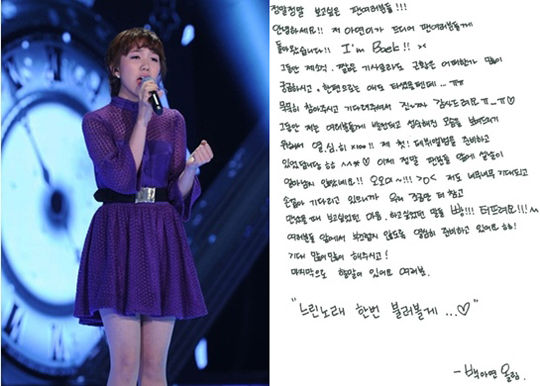 정말정말 보고싶은 팬여러분들!!!
안녕하세요!! 저 아연이가 드디어 팬여러분들께
돌아왔습니다!! I'm Back!! ><
그동안 제소식, 짧은 기사로라도 근황은 어떠한가 많이
궁금하시고, 한편으로는 애도 타셨을텐데 ..ㅠㅠ
묵묵히 참아주시고 기다려주셔서 감사드려요 ㅠ_ㅠ♡
그동안 저는 여러분들께 발전되고 성숙해진 모습을 보여드리기
위해서 열.심.히 제 첫! 데뷔앨범을 준비하고
있었답니당 ♡ 이제 정말 팬분들 앞에 설날이
얼마남지 않았네요!! 오오미~!!! >o< 저도 너무너무 기대되고
손꼽아 기다리고 있으니까 우리 조금만 더 참고
만났을때 보고싶었던 마음, 하고싶었던 말들 빵!!! 터뜨려요!!
여러분들 앞에서 부끄럽지 않도록 열심히 준비하고 있어요
기대 많이많이 해주시고!
마지막으로 할말이 있어요 여러분.
"느린노래 한번 불러볼게 ...♡"
- 백아연 올림.